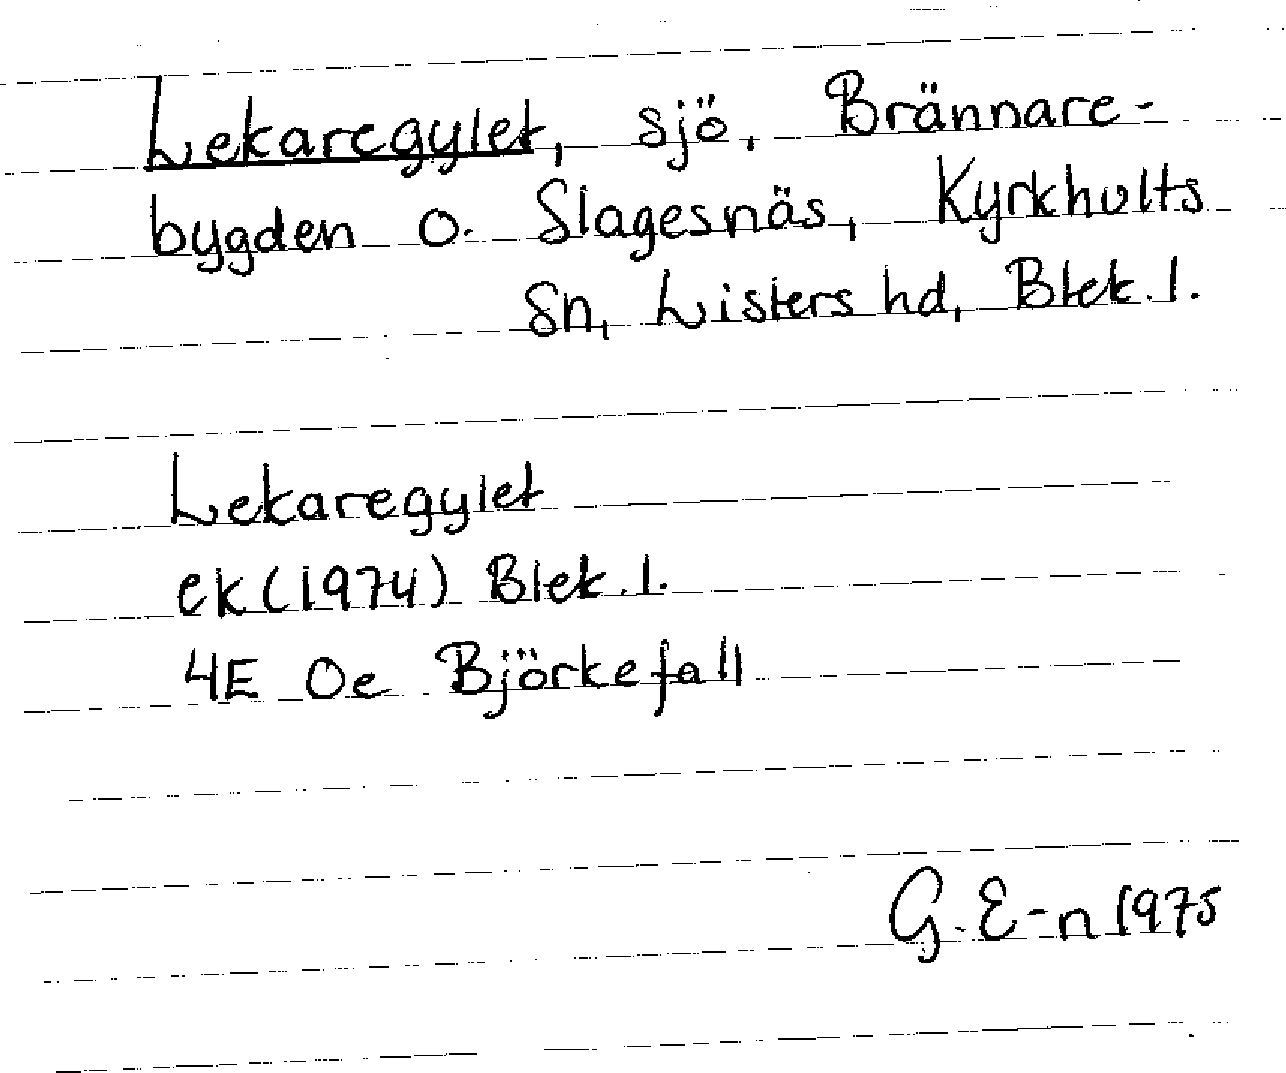 Lekaregylet, sjö, Brännare-
bygden o. Slagesnäs, Kyrkhults
sn, Listers hd, Blek. l.
Lekaregylet
ek (1974) Blek. l.
4E 0e Björkefall
G. E-n 1975